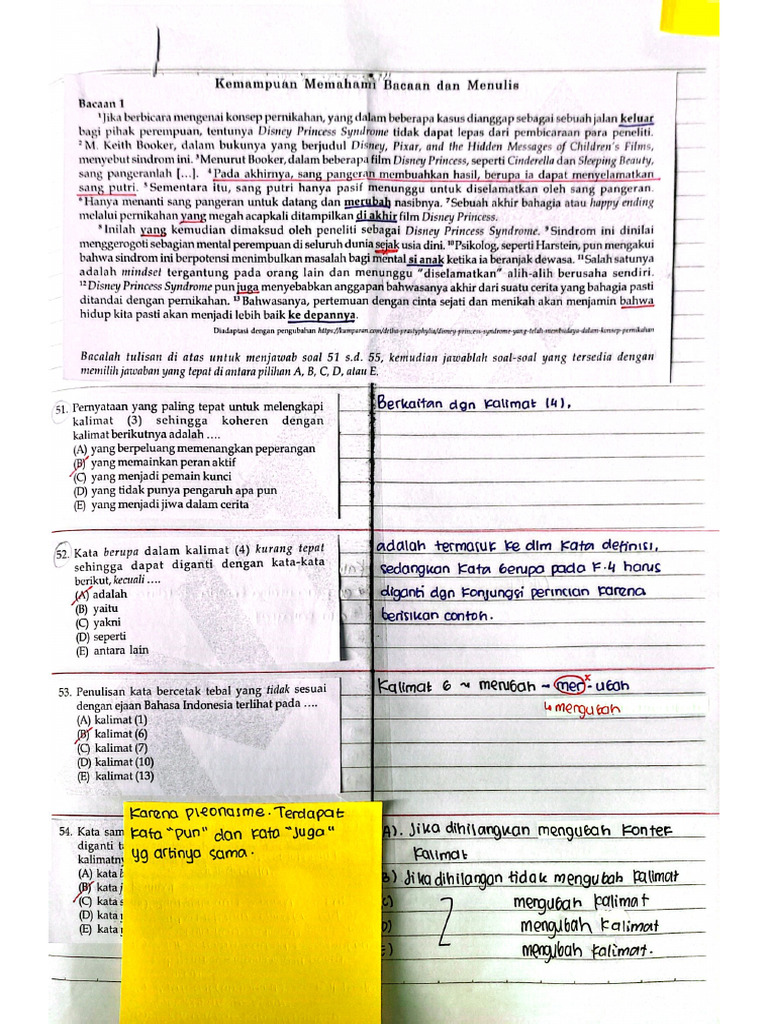 Kemampuan Memahami Bacaan dan Menulis
Bacaan 1
¹Jika berbicara mengenai konsep pernikahan, yang dalam beberapa kasus dianggap sebagai sebuah jalan keluar
bagi pihak perempuan, tentunya Disney Princess Syndrome tidak dapat lepas dari pembicaraan para peneliti.
²M. Keith Booker, dalam bukunya yang berjudul Disney, Pixar, and the Hidden Messages of Children's Films,
menyebut sindrom ini. ³Menurut Booker, dalam beberapa film Disney Princess, seperti Cinderella dan Sleeping Beauty,
sang pangeranlah [...]. ⁴Pada akhirnya, sang pangeran membuahkan hasil, berupa ia dapat menyelamatkan
sang putri. ⁵Sementara itu, sang putri hanya pasif menunggu untuk diselamatkan oleh sang pangeran.
⁶Hanya menanti sang pangeran untuk datang dan merubah nasibnya. ⁷Sebuah akhir bahagia atau happy ending
melalui pernikahan yang megah acapkali ditampilkan di akhir film Disney Princess.
⁸Inilah yang kemudian dimaksud oleh peneliti sebagai Disney Princess Syndrome. ⁹Sindrom ini dinilai
menggerogoti sebagian mental perempuan di seluruh dunia sejak usia dini. ¹⁰Psikolog, seperti Harstein, pun mengakui
bahwa sindrom ini berpotensi menimbulkan masalah bagi mental si anak ketika ia beranjak dewasa. ¹¹Salah satunya
adalah mindset tergantung pada orang lain dan menunggu "diselamatkan" alih-alih berusaha sendiri.
¹²Disney Princess Syndrome pun juga menyebabkan anggapan bahwasanya akhir dari suatu cerita yang bahagia pasti
ditandai dengan pernikahan. ¹³Bahwasanya, pertemuan dengan cinta sejati dan menikah akan menjamin bahwa
hidup kita pasti akan menjadi lebih baik ke depannya.
Diadaptasi dengan pengubahan https://kumparan.com/dritha-prastyphylia/disney-princess-syndrome-yang-telah-membudaya-dalam-konsep-pernikahan
Bacalah tulisan di atas untuk menjawab soal 51 s.d. 55, kemudian jawablah soal-soal yang tersedia dengan
memilih jawaban yang tepat di antara pilihan A, B, C, D, atau E.
51. Pernyataan yang paling tepat untuk melengkapi
kalimat (3) sehingga koheren dengan
kalimat berikutnya adalah ....
(A) yang berpeluang memenangkan peperangan
(B) yang memainkan peran aktif
(C) yang menjadi pemain kunci
(D) yang tidak punya pengaruh apa pun
(E) yang menjadi jiwa dalam cerita
Berkaitan dgn kalimat (4).
52. Kata berupa dalam kalimat (4) kurang tepat
sehingga dapat diganti dengan kata-kata
berikut, kecuali ....
(A) adalah
(B) yaitu
(C) yakni
(D) seperti
(E) antara lain
adalah termasuk ke dlm kata definisi,
sedangkan kata berupa pada K.4 harus
diganti dgn konjungsi perincian karena
berisikan contoh.
53. Penulisan kata bercetak tebal yang tidak sesuai
dengan ejaan Bahasa Indonesia terlihat pada ....
(A) kalimat (1)
(B) kalimat (6)
(C) kalimat (7)
(D) kalimat (10)
(E) kalimat (13)
Kalimat 6 ~ merubah → mer x - ubah
↳ mengubah
54. Kata sam
diganti t
kalimatny
(A) kata b
(B) kata j
(C) kata s
(D) kata
(E) kata
Karena pleonasme. Terdapat
kata "pun" dan kata "juga"
yg artinya sama.
A). Jika dihilangkan mengubah kontek
kalimat
B) Jika dihilangan tidak mengubah kalimat
C) mengubah kalimat
D) mengubah kalimat
E) mengubah kalimat.